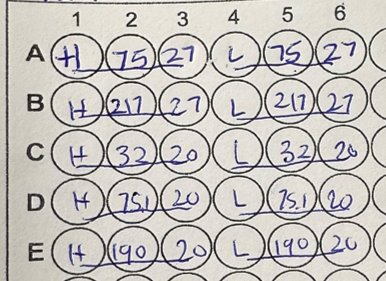 1 2 3 4 5 6
A H 75 27 L 75 27
B H 217 27 L 217 27
C H 32 20 L 32 20
D H 75.1 20 L 75.1 20
E H 190 20 L 190 20